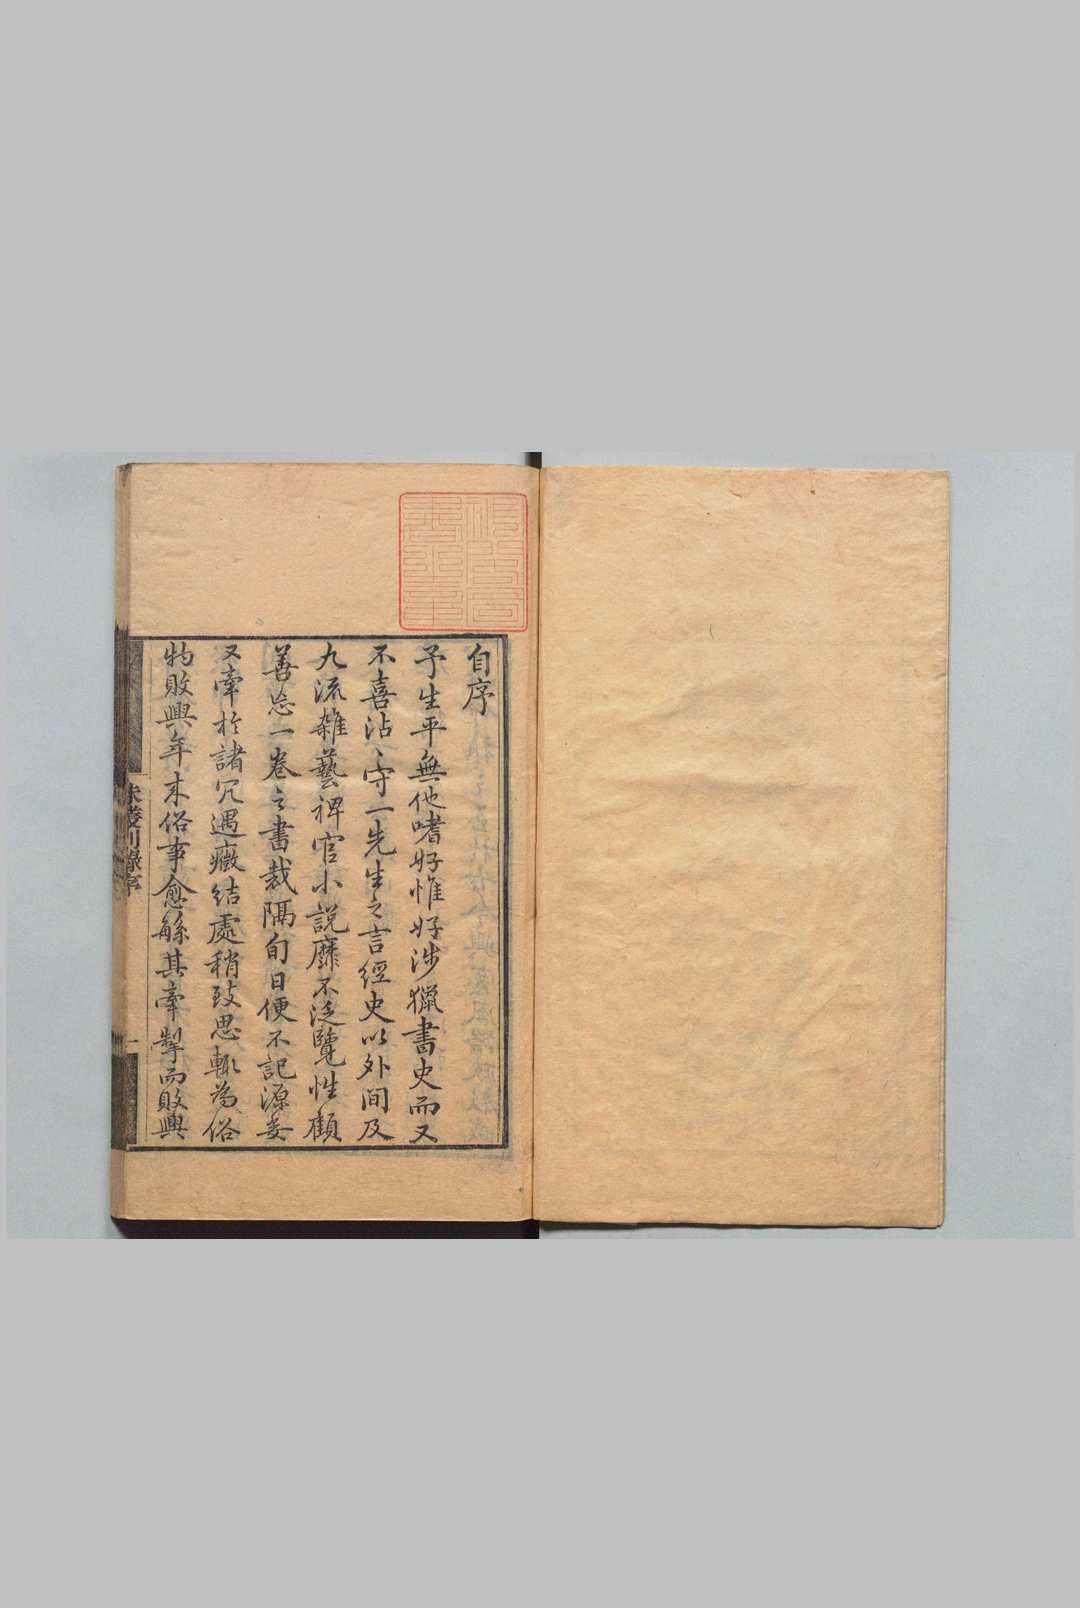 自序
予生平無他嗜好惟好涉獵書史而又
不喜沾〻守一先生之言經史以外間及
九流雜藝裨官小說靡不泛覽性顧
善忘一卷之書裁隔旬日便不記源委
又牽於諸冗遇癥結處稍致思輒為俗
物敗興年來俗事愈緐其牽掣而敗興